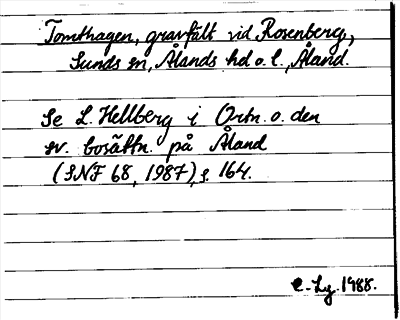 Tomthagen, gravfält vid Rosenberg,
Sunds sn, Ålands hd o. l., Åland.
Se L. Hellberg i Ortn. o. den
sv. bosättn. på Åland
(SNF 68, 1987), s. 164.
e. Lg. 1988.